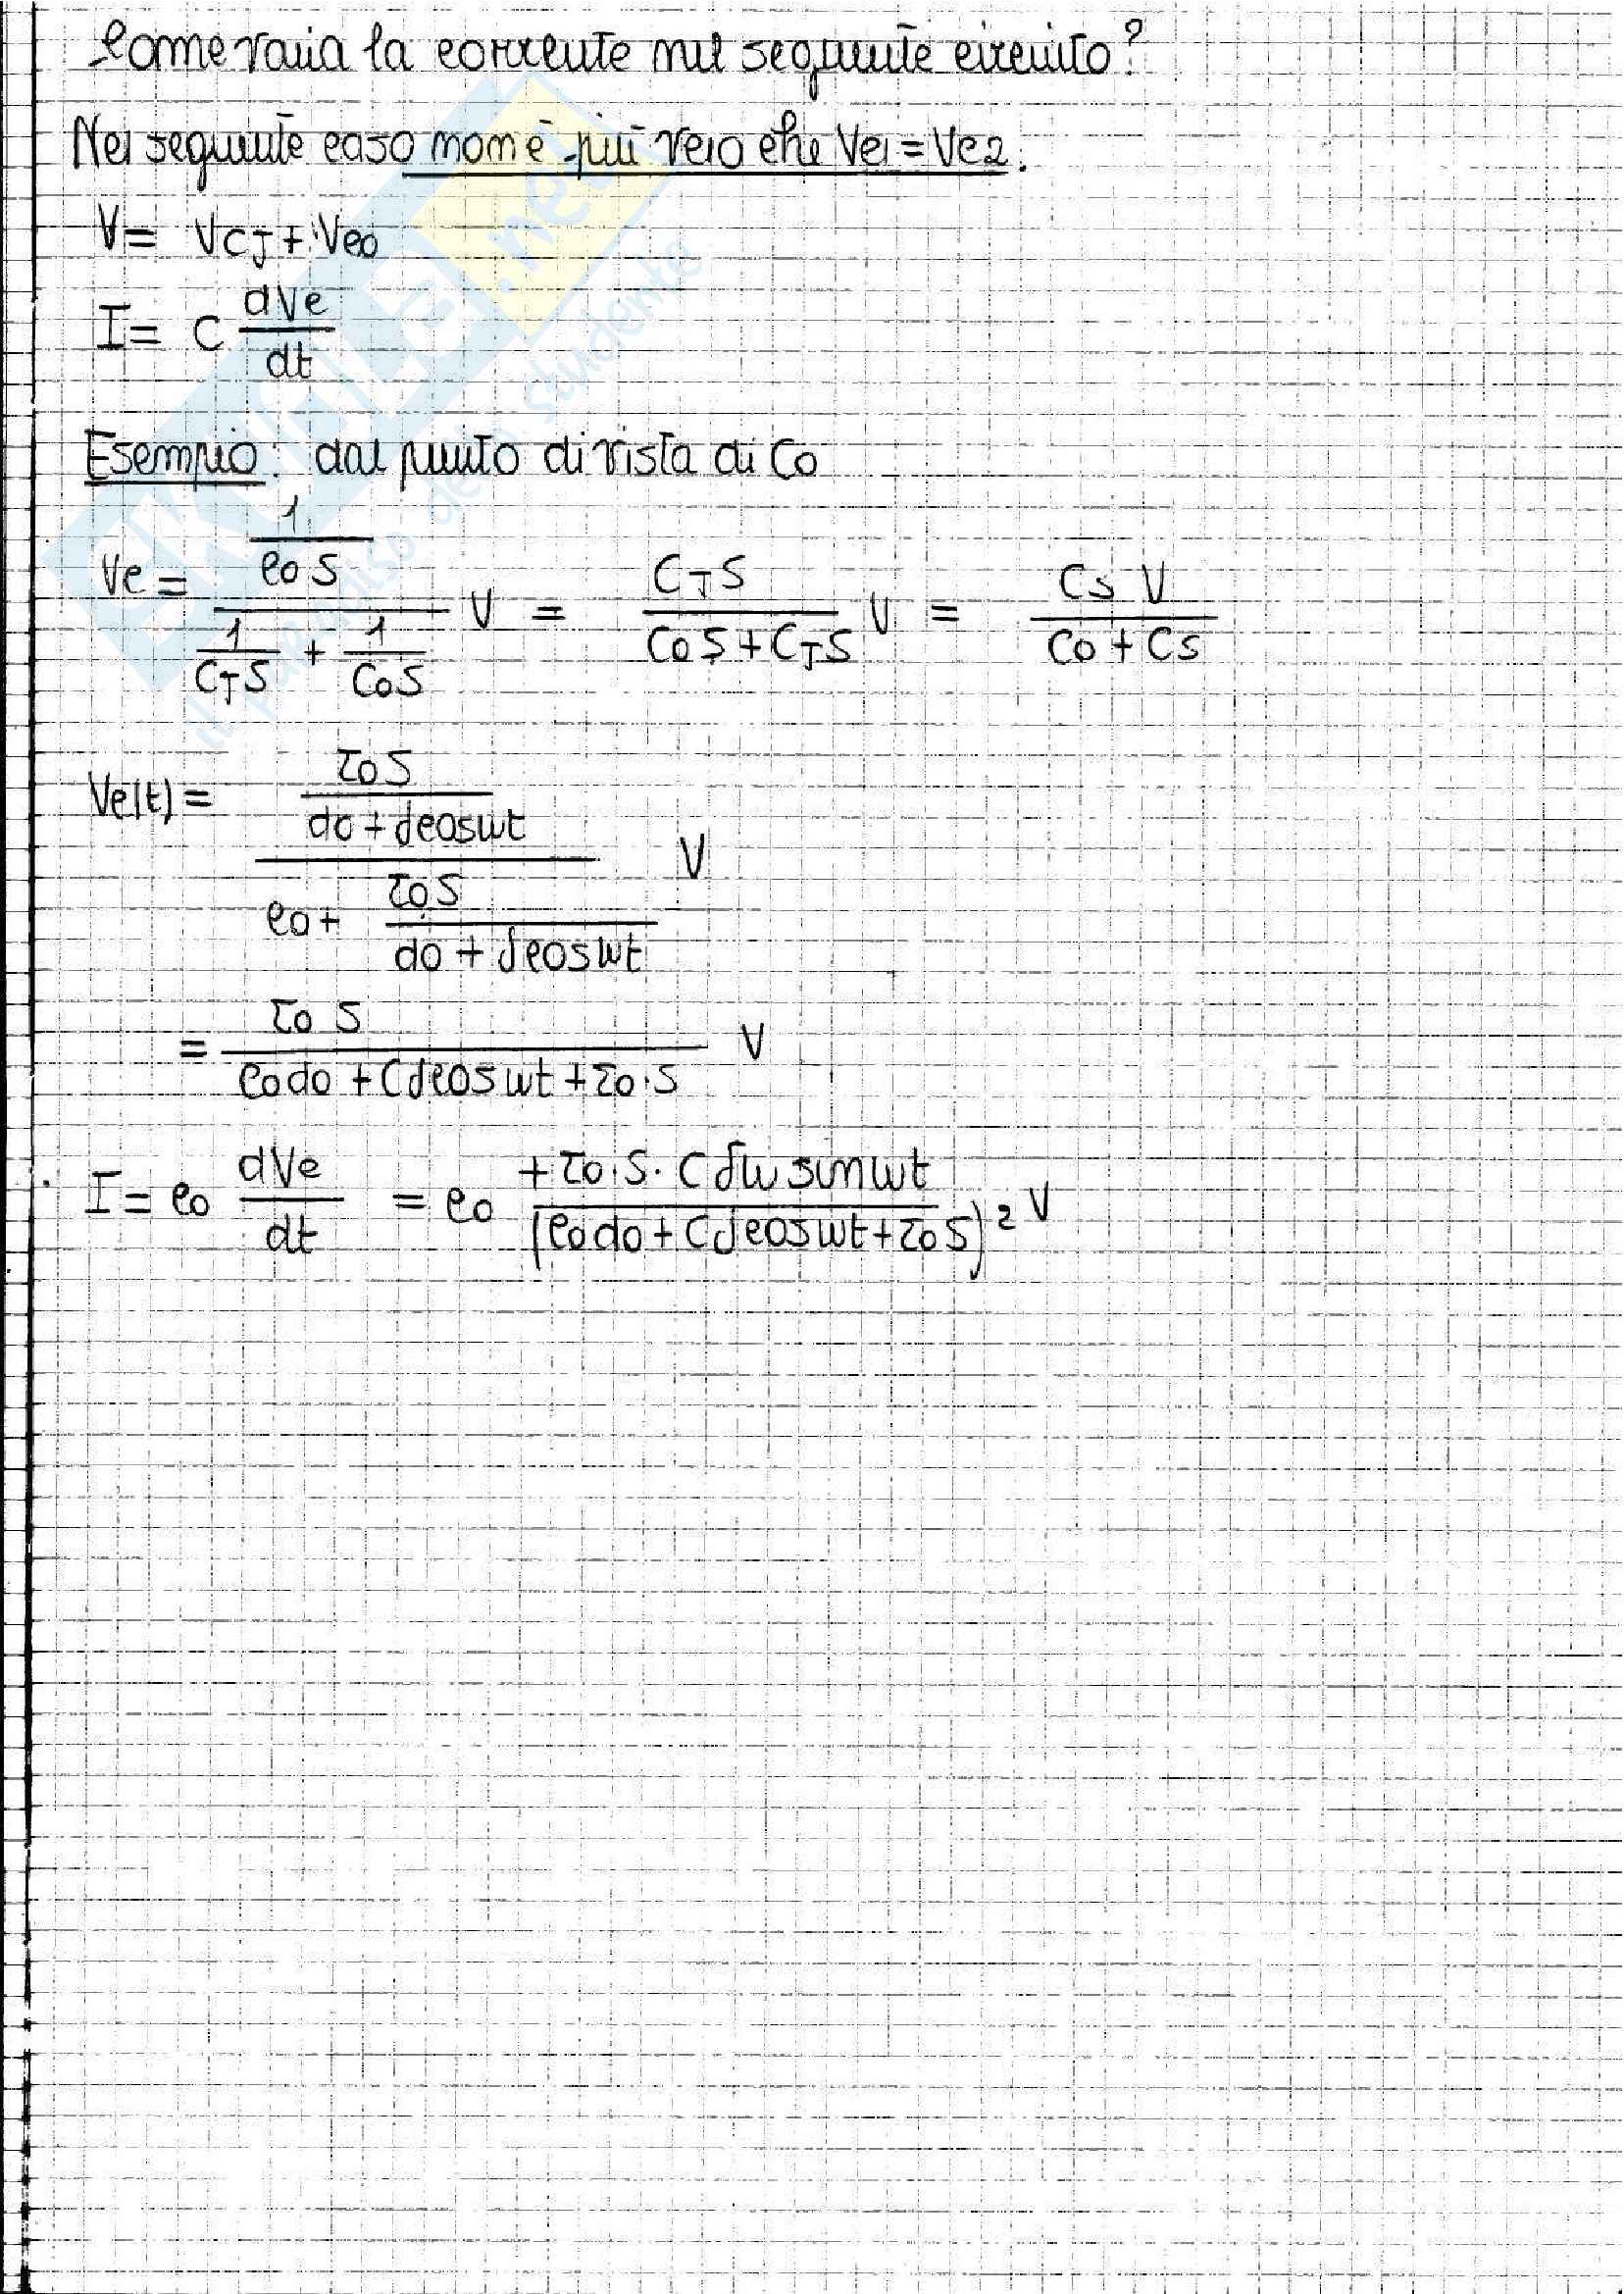 Come varia la corrente nel seguente circuito?
Nel seguente caso non è più vero che Vc1 = Vc2.
V = VCJ + Vc0
I = C dVc/dt
Esempio: dal punto di vista di C0
Vc = (1/(C0 S)) / (1/(CJ S) + 1/(C0 S)) V = (CJ S)/(C0 S + CJ S) V = (CS V)/(C0 + CS)
Vc(t) = (ε0 S/(d0 + δ cos ωt)) / (C0 + ε0 S/(d0 + δ cos ωt)) V
= (ε0 S)/(C0 d0 + C δ cos ωt + ε0·S) V
I = C0 dVc/dt = C0 (+ ε0·S· C δω sin ωt)/(C0 d0 + C δ cos ωt + ε0 S)² V
.net
dello studente